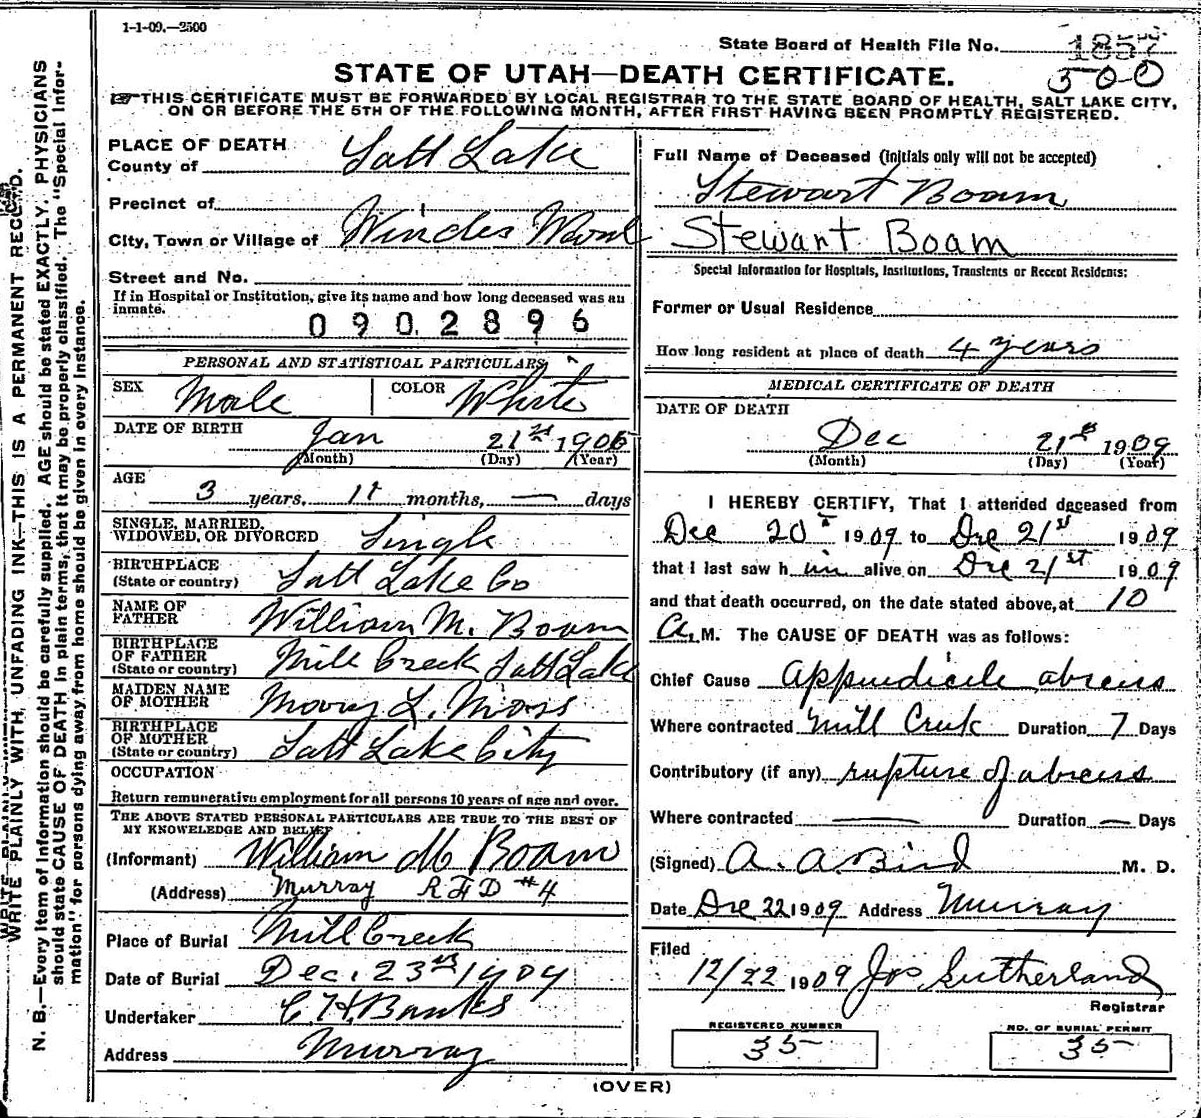 1-1-09.—2500
State Board of Health File No. 1857
300
STATE OF UTAH—DEATH CERTIFICATE.
☞THIS CERTIFICATE MUST BE FORWARDED BY LOCAL REGISTRAR TO THE STATE BOARD OF HEALTH, SALT LAKE CITY,
ON OR BEFORE THE 5TH OF THE FOLLOWING MONTH, AFTER FIRST HAVING BEEN PROMPTLY REGISTERED.
WRITE PLAINLY WITH UNFADING INK—THIS IS A PERMANENT RECORD.
N. B.—Every item of information should be carefully supplied. AGE should be stated EXACTLY. PHYSICIANS
should state CAUSE OF DEATH in plain terms, that it may be properly classified. The "Special Infor-
mation" for persons dying away from home should be given in every instance.
PLACE OF DEATH
County of Salt Lake
Precinct of
City, Town or Village of Winder
Street and No.
If in Hospital or Institution, give its name and how long deceased was an
inmate.
0902896
PERSONAL AND STATISTICAL PARTICULARS
SEX Male COLOR White
DATE OF BIRTH Jan 21st 1906
(Month) (Day) (Year)
AGE
3 years, 11 months, — days
SINGLE, MARRIED,
WIDOWED, OR DIVORCED Single
BIRTHPLACE
(State or country) Salt Lake Co
NAME OF
FATHER William M. Boam
BIRTHPLACE
OF FATHER
(State or country) Mill Creek Salt Lake
MAIDEN NAME
OF MOTHER Mary L. Moss
BIRTHPLACE
OF MOTHER
(State or country) Salt Lake City
OCCUPATION
Return remunerative employment for all persons 10 years of age and over.
THE ABOVE STATED PERSONAL PARTICULARS ARE TRUE TO THE BEST OF
MY KNOWLEDGE AND BELIEF
(Informant) William M Boam
(Address) Murray R F D #4
Place of Burial Mill Creek
Date of Burial Dec. 23rd 1909
Undertaker C. H. Banks
Address Murray
Full Name of Deceased (Initials only will not be accepted)
Stewart Boam
Stewart Boam
Special Information for Hospitals, Institutions, Transients or Recent Residents:
Former or Usual Residence
How long resident at place of death 4 years
MEDICAL CERTIFICATE OF DEATH
DATE OF DEATH
Dec 21st 1909
(Month) (Day) (Year)
I HEREBY CERTIFY, That I attended deceased from
Dec 20th 1909 to Dec 21st 1909
that I last saw him alive on Dec 21st 1909
and that death occurred, on the date stated above, at 10
A. M. The CAUSE OF DEATH was as follows:
Chief Cause Appendicile abcess
Where contracted Mill Creek Duration 7 Days
Contributory (if any) rupture of abcess
Where contracted — Duration — Days
(Signed) A. A. Bird M. D.
Date Dec 22 1909 Address Murray
Filed
12/22 1909 Jos Sutherland
Registrar
REGISTERED NUMBER
35
NO. OF BURIAL PERMIT
35
(OVER)